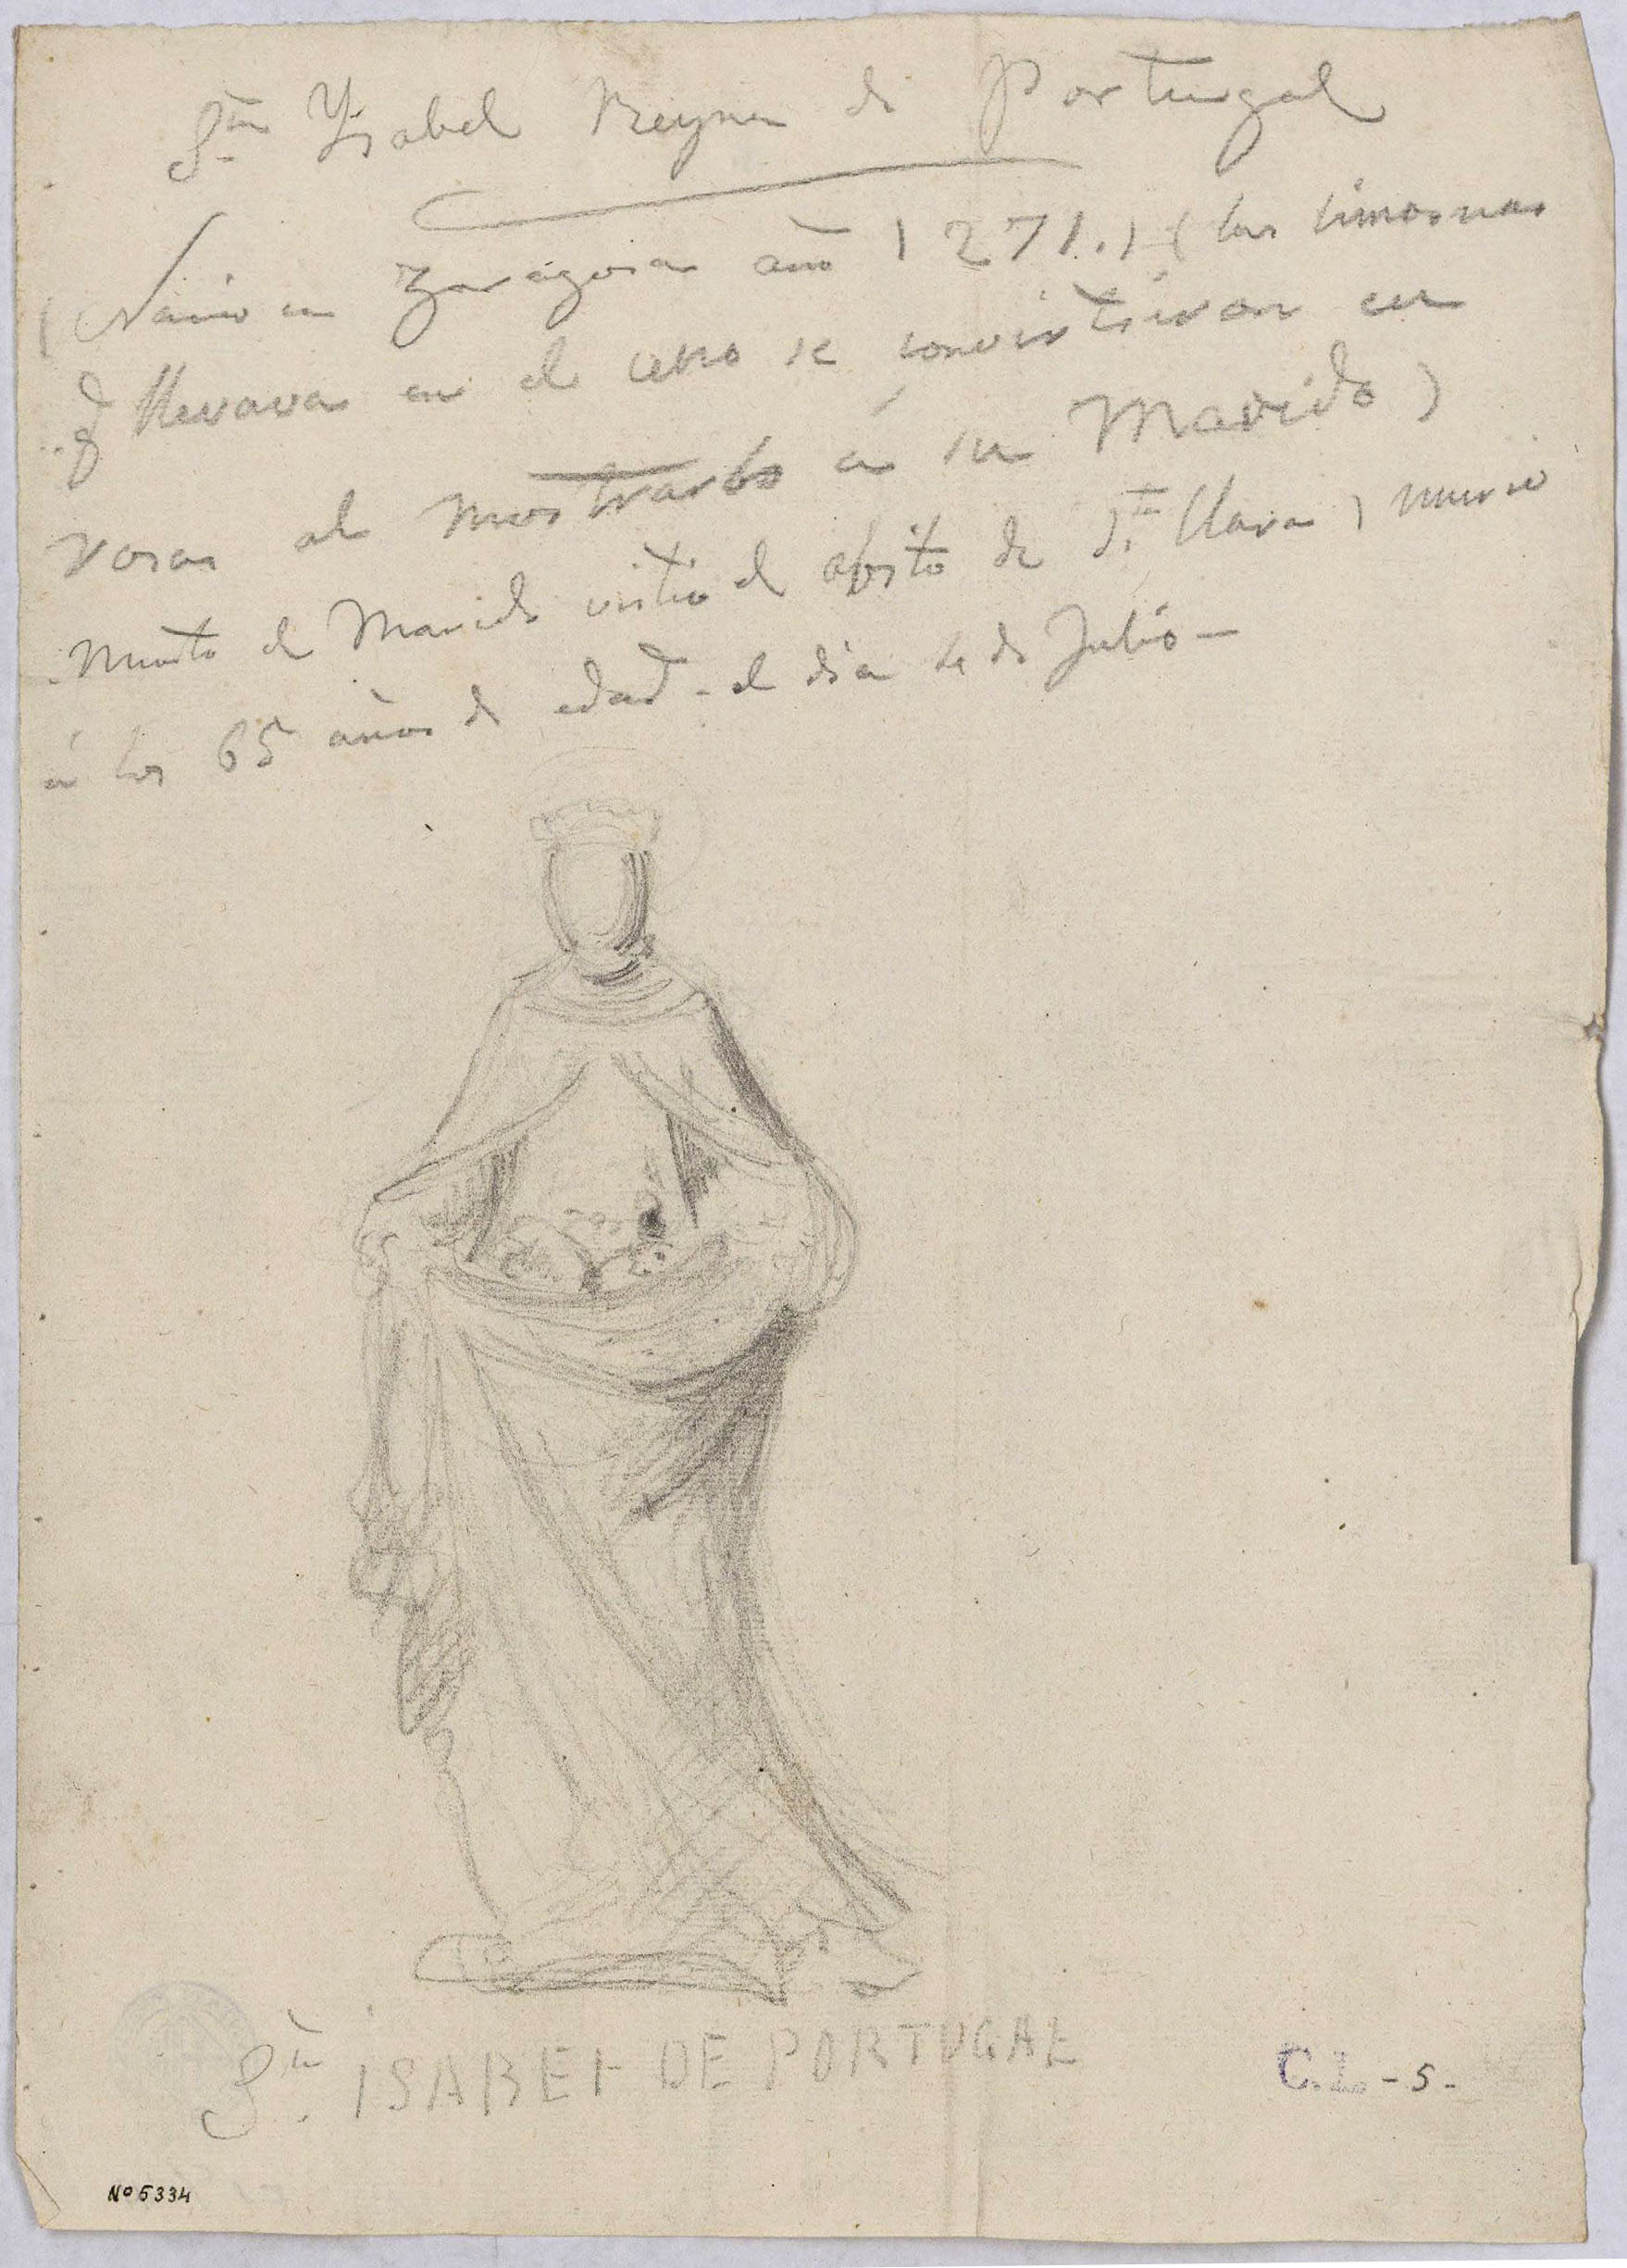 Sta. Ysabel Reyna de Portugal
(Nacio en Zaragosa año 1271.) (las limosnas
q llevava en el ceno se convirtieron en
rosas al mostrarlo á su Marido)
Muerto el Marido vistio el abito de Sta. Clara, murio
á los 65 años de edad - el dia 4 de Julio -
Sta. ISABEL DE PORTUGAL
C.L - 5 -
Nº 5334